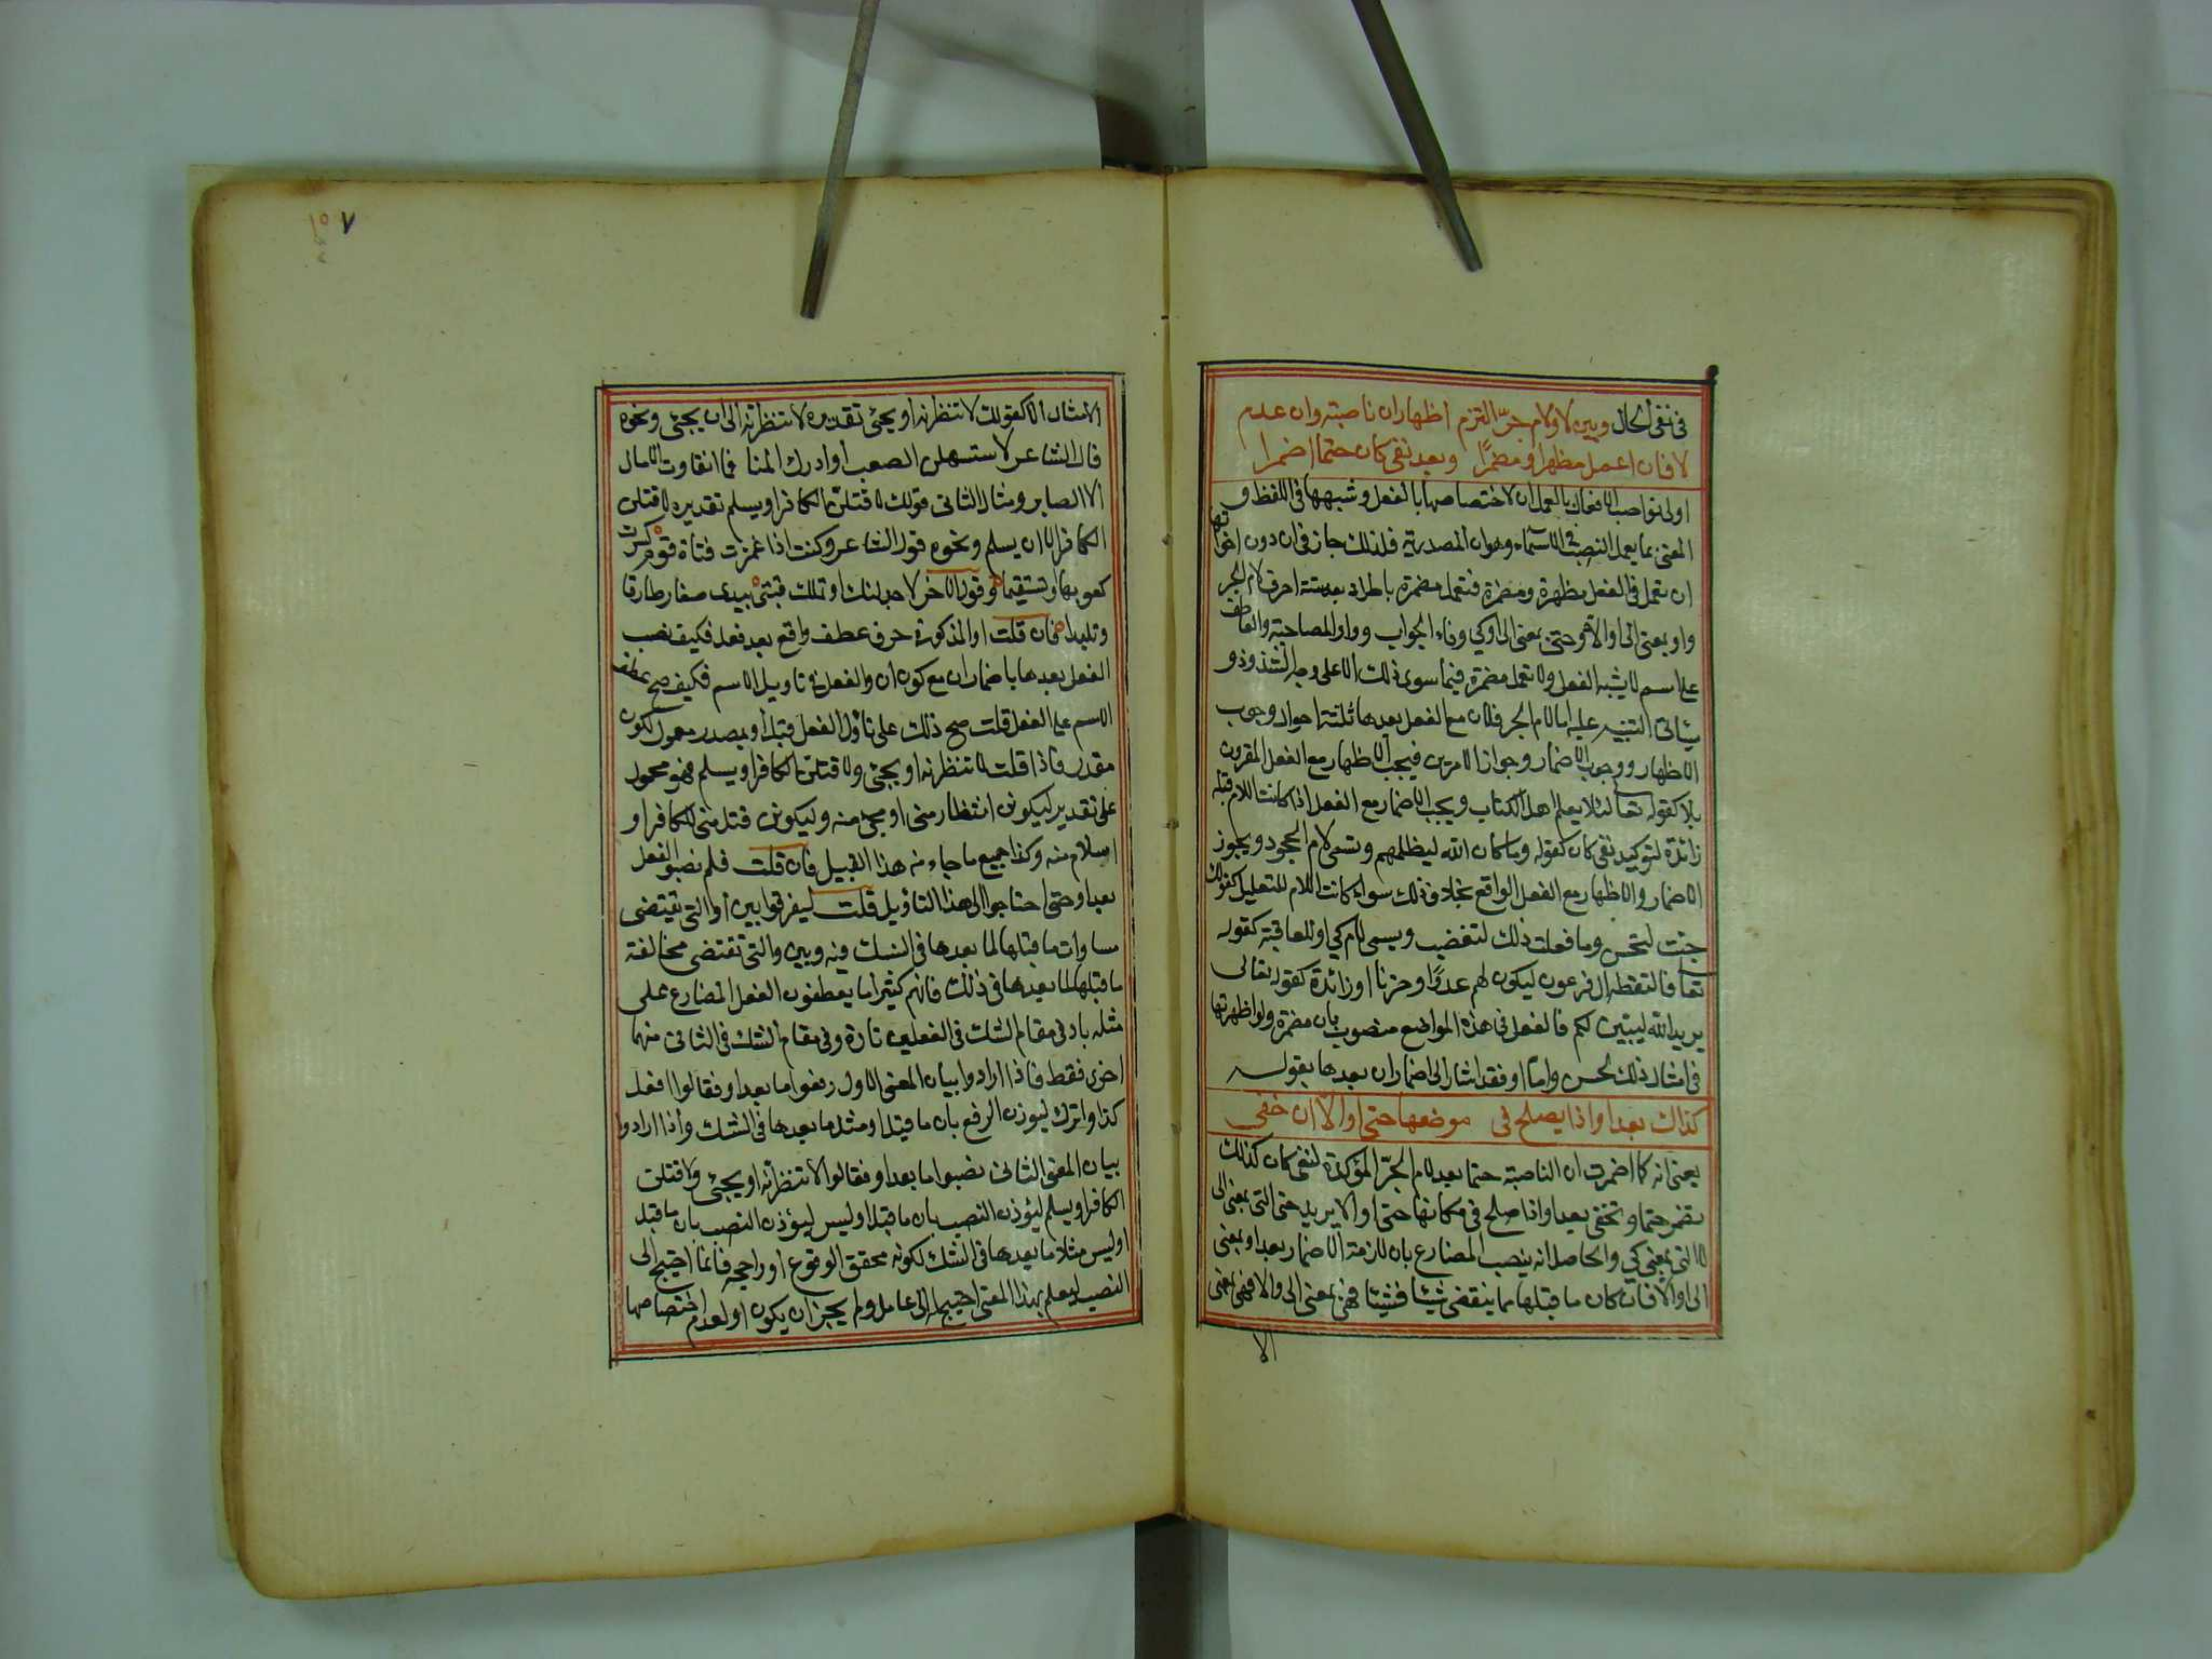 في نفي الحال وبين لا ولام جرّ التزم اظهار ان ناصبة وان عدم
لا فان اعمل مظهرا او مضمرًا وبعد نفي كان حتما اضمرا
اولى نواصب الافعال بالعمل ان لاختصاصها بالفعل وشبهها في اللفظ و
المعنى بما يعمل النصب في الاسماء وهو ان المصدرية فلذلك جاز في ان دون اخواتها
ان تعمل في الفعل مظهرة ومضمرة فتعمل مضمرة باطراد بعد ستة احرف لام الجر
واو بمعنى الى او الا وحتى بمعنى الى او كي وفاء الجواب وواو المصاحبة والعاطف
على اسم لا يشبه الفعل ولا تعمل مضمرة فيما سوى ذلك الا على وجه الشذوذ و
سياتي التنبيه عليه اما لام الجر فلان مع الفعل بعدها ثلثة احوال وجوب
الاظهار ووجوب الاضمار وجواز الامرين فيجب الاظهار مع الفعل المقرون
بلا كقوله تعالى لئلا يعلم اهل الكتاب ويجب الاضمار مع الفعل اذا كانت اللام قبله
زائدة لتوكيد نفي كان كقوله وما كان الله ليظلمهم وتسمى لام الجحود ويجوز
الاضمار والاظهار مع الفعل الواقع بخلاف ذلك سواء كانت اللام للتعليل كقولك
جئت لتحسن وما فعلت ذلك لتغضب ويسمى لام كي او للعاقبة كقوله
تعالى فالتقطه ال فرعون ليكون لهم عدوًا وحزنا او زائدة كقوله تعالى
يريد الله ليبين لكم فالفعل في هذه المواضع منصوب بان مضمرة ولو اظهرتها
في امثال ذلك لحسن واما او فقد اشار الى اضمار ان بعدها بقوله
كذاك بعد او اذا يصلح في موضعها حتى او الا ان خفي
يعني انه كما اضمرت ان الناصبة حتما بعد لام الجرّ المؤكدة لنفي كان كذلك
تضمر حتما وتخفى بعد او اذا صلح في مكانها حتى او الا يريد حتى التي بمعنى الى
لا التي بمعنى كي والحاصل انه ينصب المضارع بان لازمة الاضمار بعد او بمعنى
الى او الا فان كان ما قبلها مما ينقضي شيئا فشيئا فهي بمعنى الى والا فهي بمعنى
الا
٧
الا مثال الاول كقولك لانتظرنه او يجئ تقديره لانتظرنه الى ان يجئ ونحوه
قال الشاعر لاستسهلن الصعب او ادرك المنا فما انقاوت الامال
الا الصابر ومثال الثاني قولك لاقتلن الكافر او يسلم تقديره لاقتلن
الكافر الا ان يسلم ونحوه قول الشاعر وكنت اذا غمزت قناة قوم كسرت
كعوبها او تستقيما وقول الاخر لاجدلنك او تملك فتيتي بيدى صغار طارفا
وتليدا فان قلت او المذكورة حرف عطف واقع بعد فعل فكيف نصب
الفعل بعدها باضمار ان مع كون ان والفعل في تاويل الاسم فكيف صح عطف
الاسم على الفعل قلت صح ذلك على تاوّل الفعل قبل او بمصدر معمول لكون
مقدر فاذا قلت لانتظرنه او يجئ ولاقتلن الكافر او يسلم فهو محمول
على تقدير ليكونن انتظار مني او مجئ منه وليكونن قتل مني للكافر او
اسلام منه وكذا جميع ما جاء من هذا القبيل فان قلت فلم نصبوا الفعل
بعد او حتى احتاجوا الى هذا التاويل قلت ليفرقوا بين او التي تقتضي
مساوات ما قبلها لما بعدها في الشك فيه وبين والتي تقتضي مخالفة
ما قبلها لما بعدها في ذلك فانهم كثيرا ما يعطفون الفعل المضارع على
مثله باو في مقام الشك في الفعلين تارة وفي مقام الشك في الثاني منهما
اخرى فقط فاذا ارادوا بيان المعنى الاول رفعوا ما بعد او فقالوا افعل
كذا او اترك ليوذن الرفع بان ما قبل او مثل ما بعدها في الشك واذا ارادوا
بيان المعنى الثاني نصبوا ما بعد او فقالوا لانتظرنّه او يجئ ولاقتلن
الكافر او يسلم ليؤذن النصب بان ما قبل او ليس ليؤذن النصب بان ما قبل
او ليس مثل ما بعدها في الشك لكونه محقق الوقوع او راجحه فلما احتيج الى
النصب ليعلم بهذا المعنى احتيج الى عامل ولم يجز ان يكون او لعدم اختصاصها